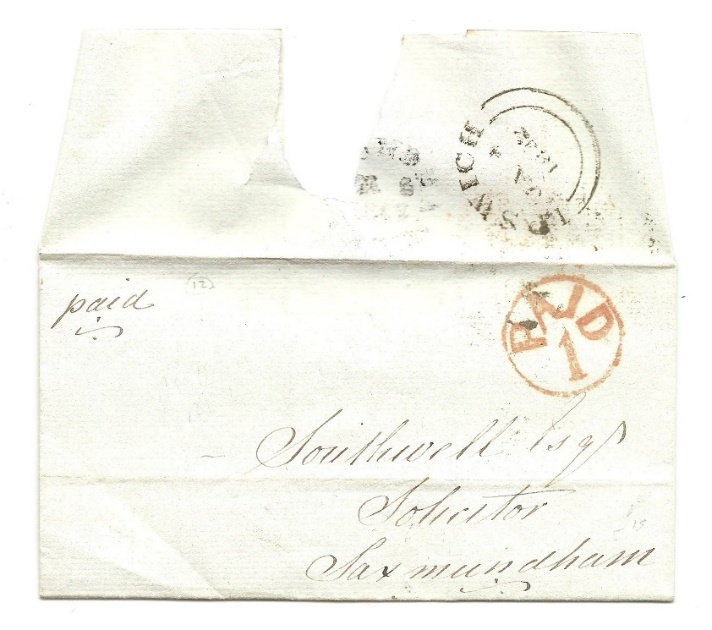 IPSWICH
paid
(12)
PAID
1
Southwell Esqr
Solicitor
Saxmundham